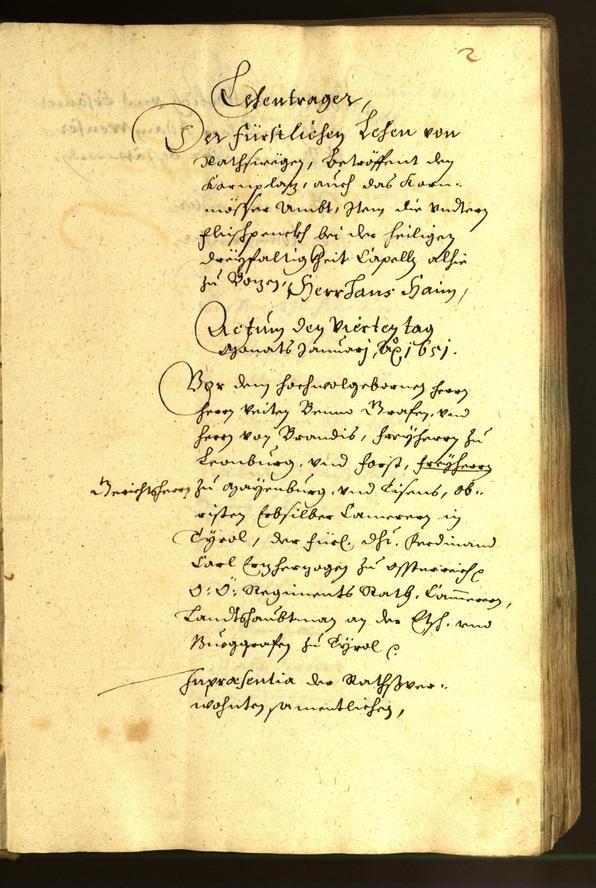 2
Lehentrager,
Der fürstlichen Lehen von
Rathswegen, betröffent den
Kornplaz, auch das Korn-
mösser Ambt, Item die undtern
fleischpenckh bei der heiligen
dreyfaltigkheit Capelln alhie
zu Bozen, Herr Hans Haim,
Actum den vierten tag
Monats Januarj, Ao 1651.
Vor dem hochwolgebornen herrn
herrn Veiten Benno Grafen, und
herrn von Brandis, freyherrn zu
Leonburg, und forst, freyherrn
Gerichtsherrn zu Mayenburg, und Tisens, ob-
risten Erbsilber Camerern in
Tyrol, der fürl: dht: Ferdinand
Carl Erzherzogen zu Össterreich
O: Ö: Regiments Rath, Camerern,
Landtshaubtman an der Etsch, und
Burggrafen zu Tyrol
In praesentia der Rathsver-
wohnten samentlichen,